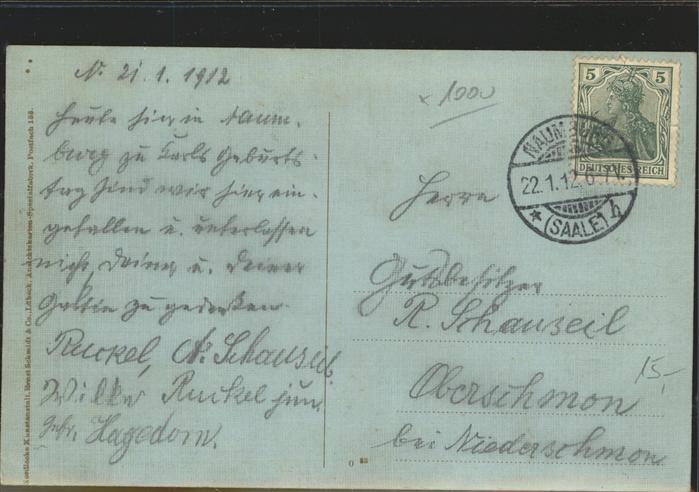 N. 21.1.1912
Heute hier in Naum-
burg zu Karls Geburts-
tag sind wir hier ein-
gefallen u. unterlassen
nicht, Deiner u. Deiner
Gattin zu gedenken
Ruckel, A. Schauseil
Willy Ruckel jun.
Gebr. Hagedorn.
x 1000
5 5
DEUTSCHES REICH
NAUMBURG
22.1.12. 6-7 N.
* (SAALE) h
Herrn
Gutsbesitzer
R. Schauseil
Oberschmon
bei Niederschmon
15,-
Nordische Kunstanstalt, Ernst Schmidt & Co., Lübeck. Ansichtskarten-Spezialfabrik. Postfach 156.